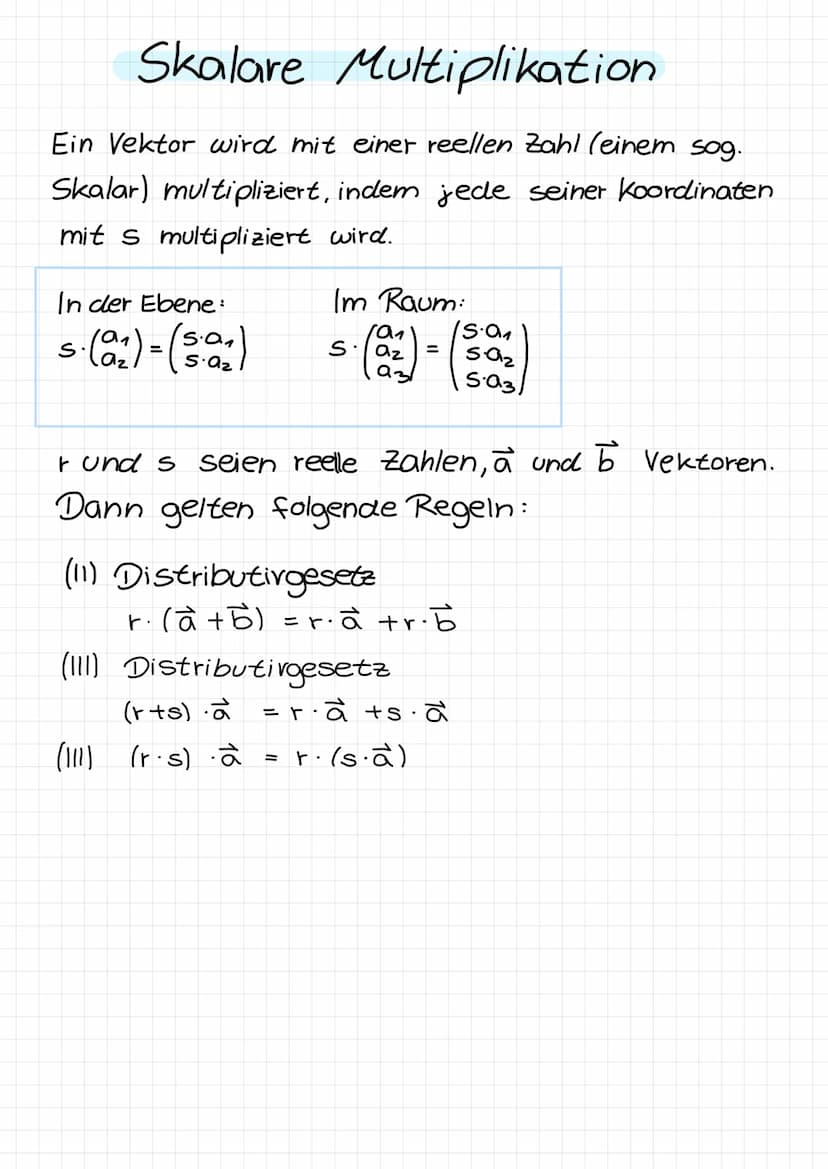 Skalare Multiplikation
Ein Vektor wird mit einer reellen Zahl (einem sog.
Skalar) multipliziert, indem jede seiner Koordinaten
mit s multipliziert wird.
In der Ebene: Im Raum:
s·(a₁ a₂) = (s·a₁ s·a₂) s·(a₁ a₂ a₃) = (s·a₁ s·a₂ s·a₃)
r und s seien reelle Zahlen, a⃗ und b⃗ Vektoren.
Dann gelten folgende Regeln:
(II) Distributivgesetz
r·(a⃗ + b⃗) = r·a⃗ + r·b⃗
(III) Distributivgesetz
(r+s)·a⃗ = r·a⃗ + s·a⃗
(III) (r·s)·a⃗ = r·(s·a⃗)